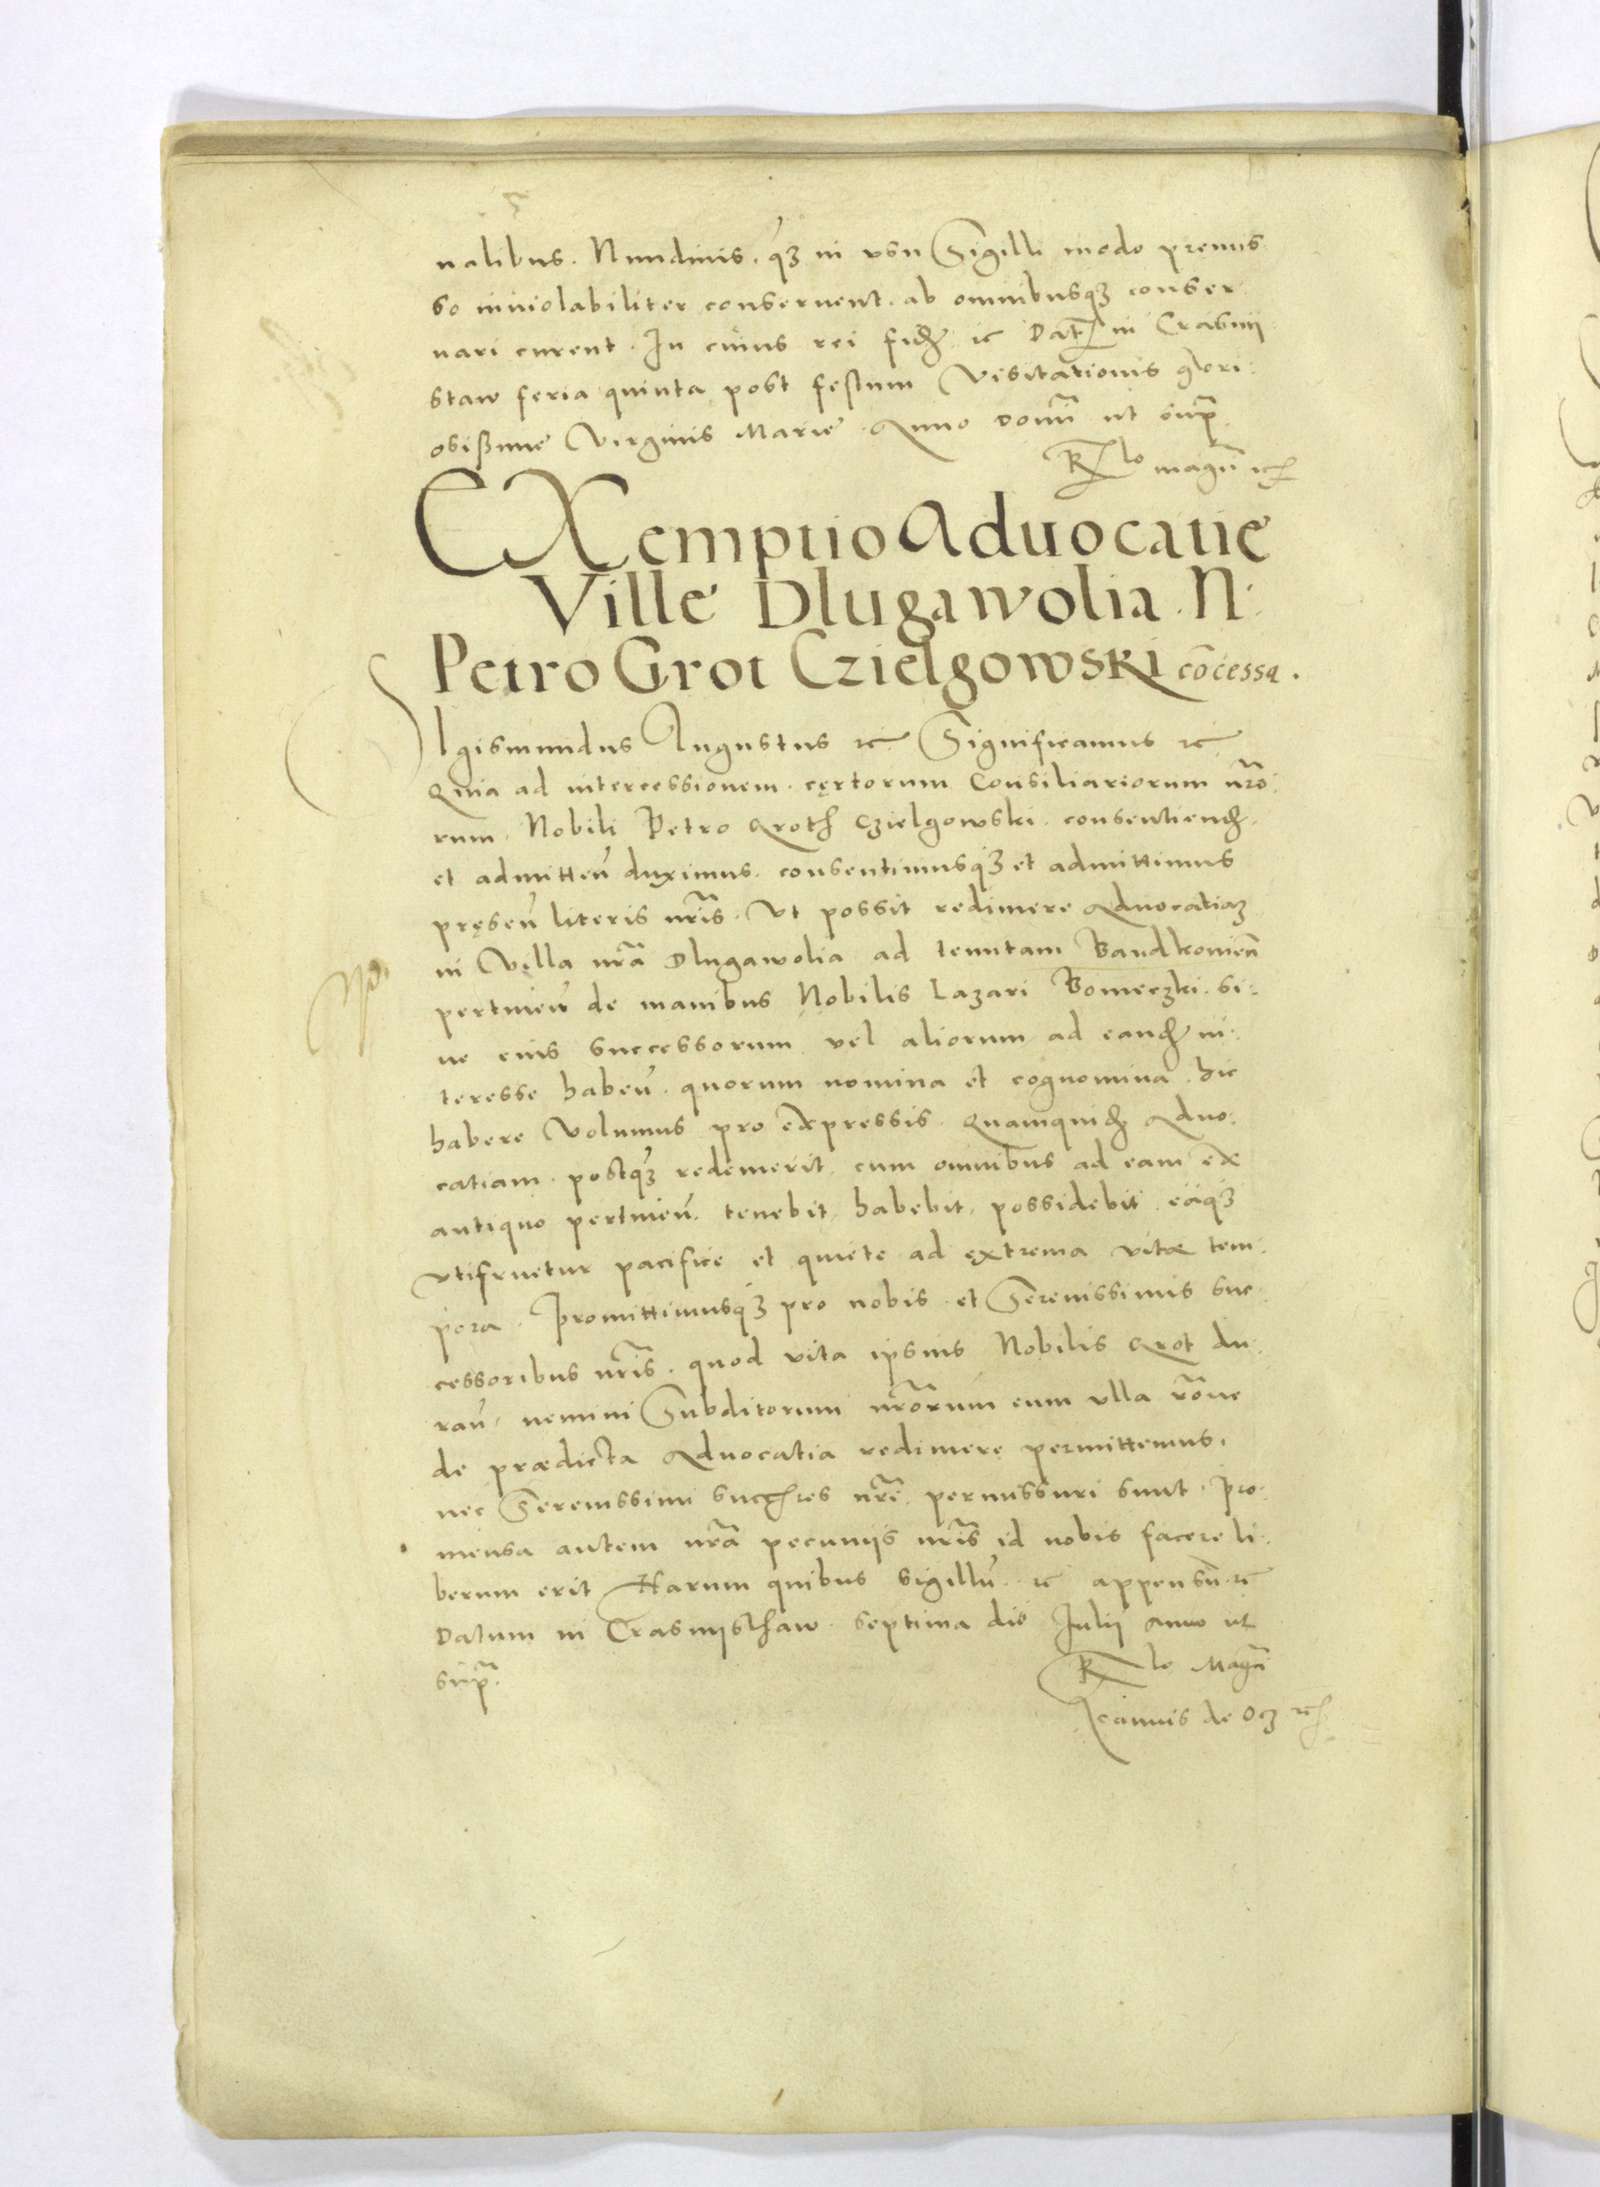 nalibus. Nundinis. q̃ꝫ in vsu Sigilli modo premis
so inuiolabiliter conseruent. ab omnibusqꝫ conser
uari curent. In cuius rei fidē ꝛc Dat̃ in Crasnij
staw feria quinta post festum Visitationis glori
osißime Virginis Marie Anno Domi͂ ut supᷓ
Rlo magn̄ ꝛc
EXemptio Aduocatie
Ville Dlugawolia. N:
Petro Grot Czielgowski cōcessa.
SIgismundus Augustus ꝛc Significamus ꝛc
Quia ad intercessionem. cęrtorum Consiliariorum nr̄o
rum. Nobili Petro Groth Czielgowski. consentiend̄.
et admitten̄ duximus. consentimusqꝫ et admittimus
pręsen̄ literis nr̄is. Vt possit redimere Aduocatiaꝫ
in Villa nr̄a Dlugawolia ad tenutam Bandkouien̄
pertinen̄ de manibus Nobilis Lazari Bomeczki. si
ue eius successorum vel aliorum ad eand̄ in
teresse haben̄. quorum nomina et cognomina hic
habere Volumus pro expressis. Quamquid̄ Aduo
catiam. postq̃ꝫ redemerit. cum omnibus ad eam ex
antiquo pertinen̄. tenebit. habebit. possidebit eaq̃ꝫ
vtifruetur pacifice et quiete ad extrema vitæ tem
pora. Promittimusqꝫ pro nobis. et Serenissimis suc
cessoribus nr̄is. quod vita ipsius Nobilis Grot du
ran̄. nemini Subditorum nr̄orum eum vlla r̄one
de prædicta Aduocatia redimere permittemus.
nec Serenissimi succ̄res nr̄i permissuri sunt. Pro
mensa autem nr̄a pecunijs nr̄is id nobis facere li
berum erit Harum quibus sigillū ꝛc appensū ꝛc
Datum in Crasnijsthaw. septima die Julij Anno ut
supᷓ.
Rlo Magn̄
Joannis de Ocꝫ ꝛc